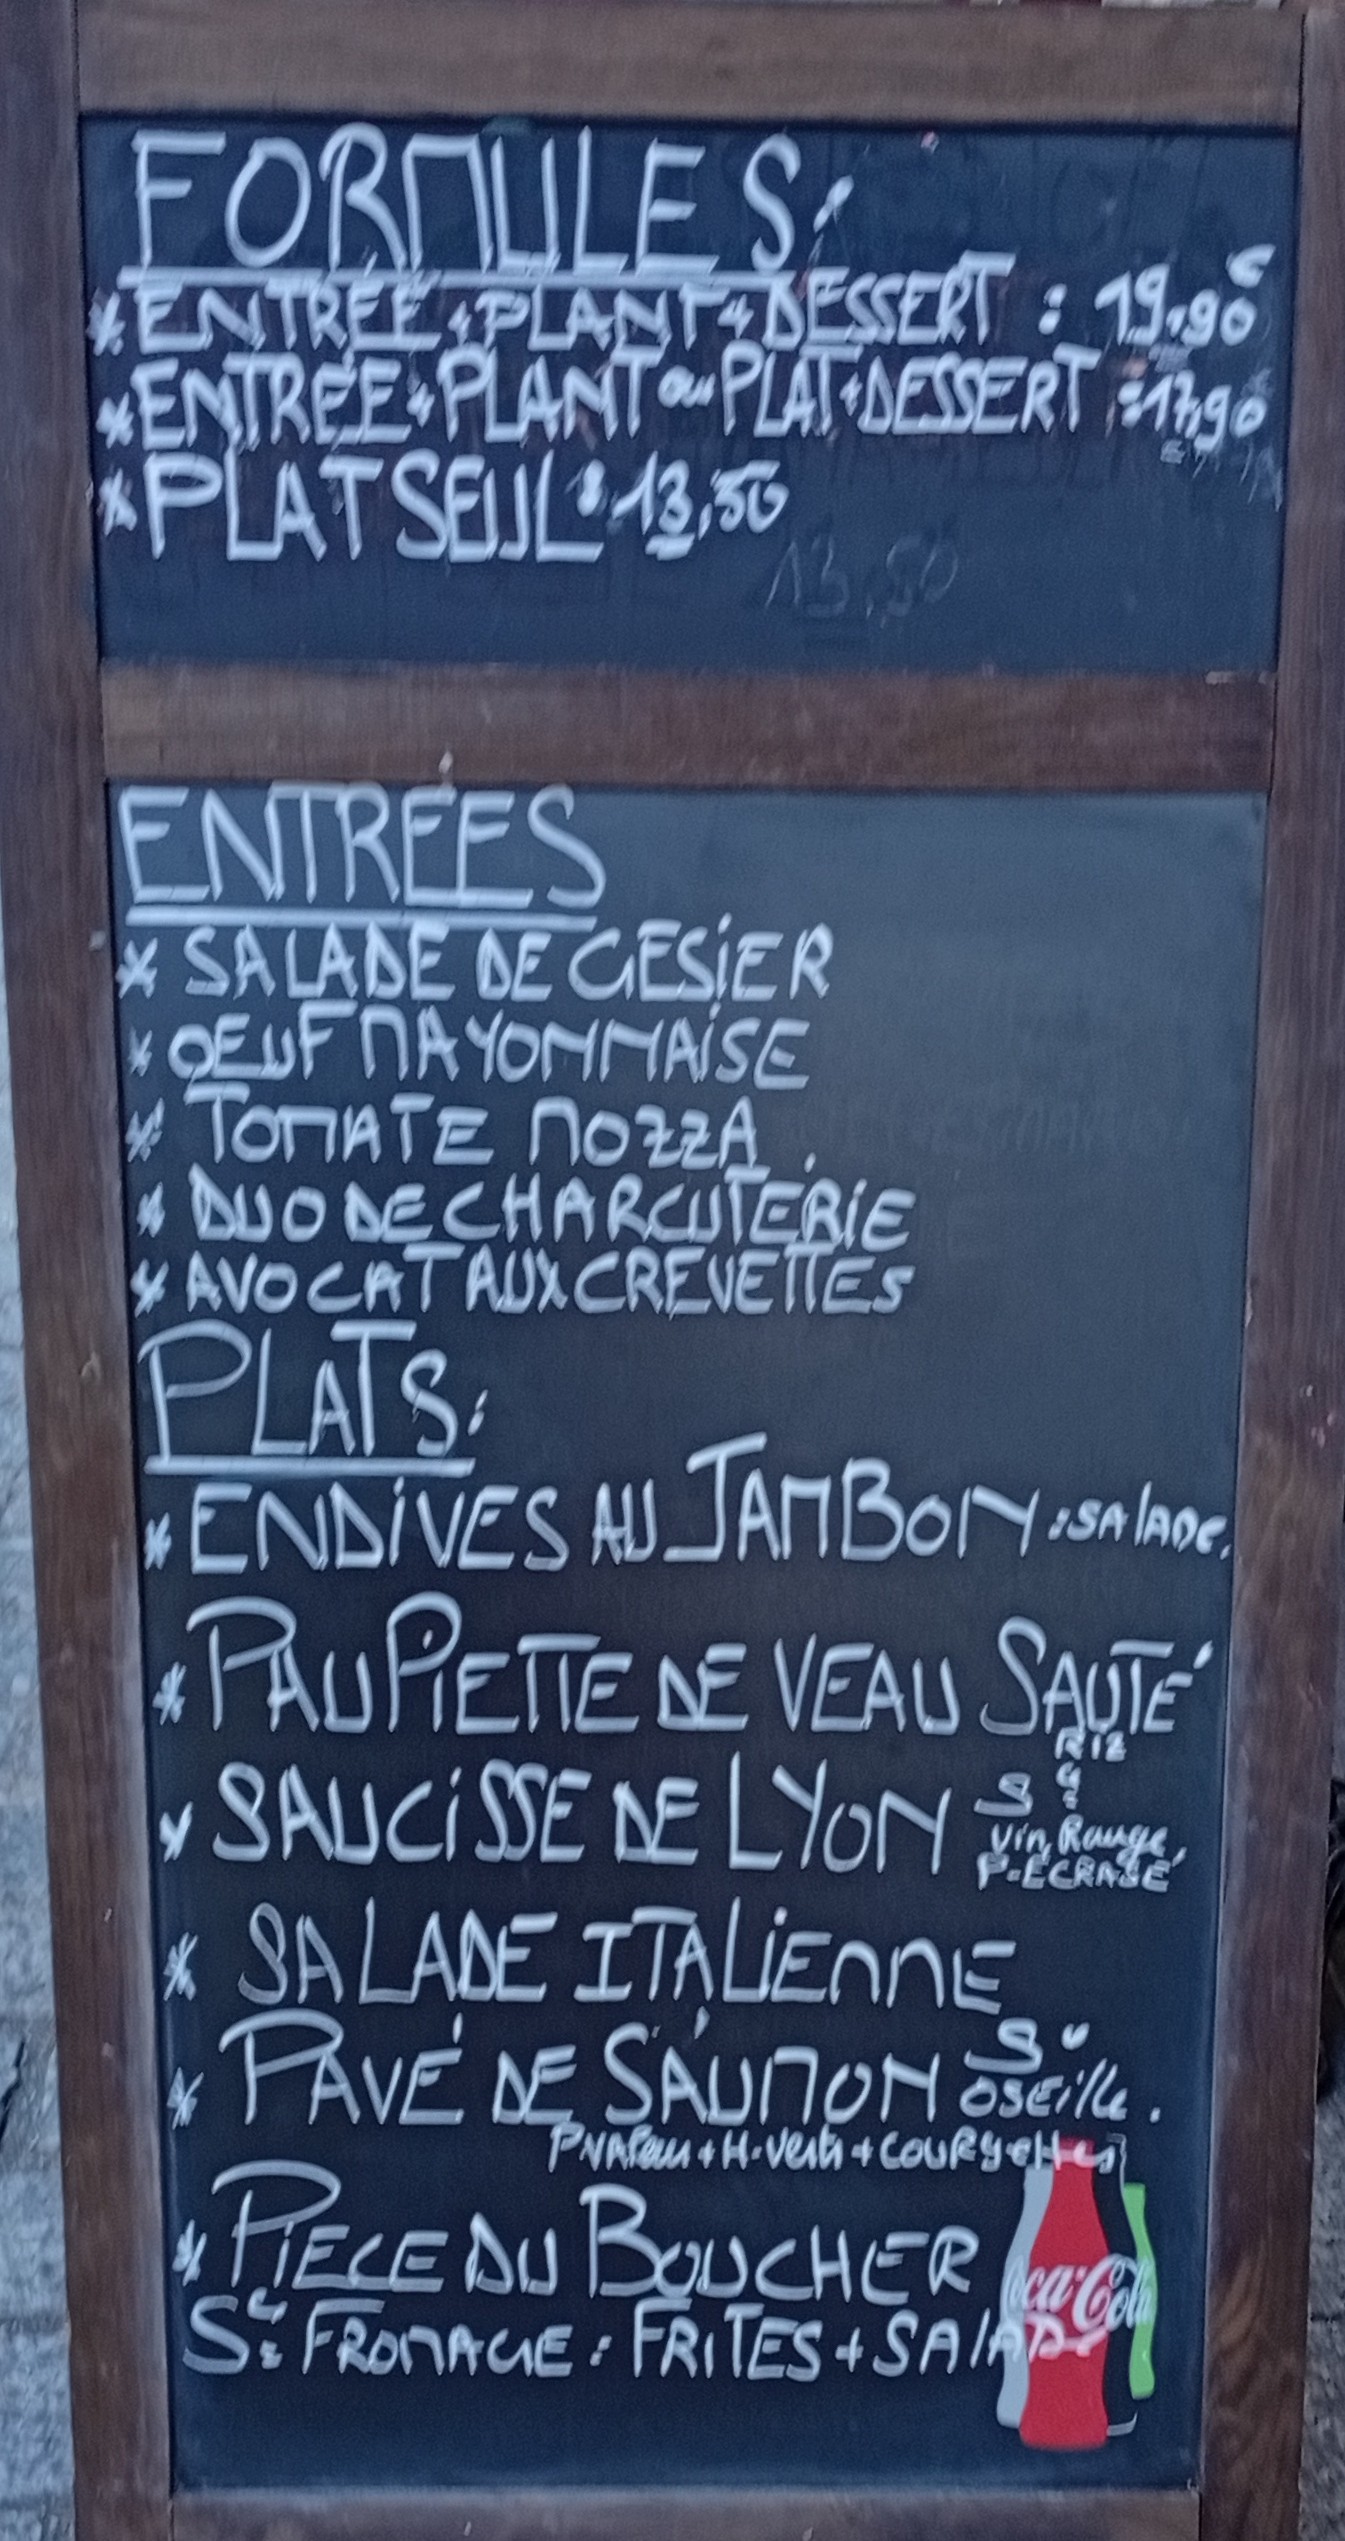 FORMULES:
* ENTRÉE + PLANT + DESSERT : 19,90€
* ENTRÉE + PLANT ou PLAT + DESSERT : 17,90
* PLAT SEUL : 13,50
13,50
ENTRÉES
* SALADE DE GESIER
* OEUF MAYONNAISE
* TOMATE MOZZA
* DUO DE CHARCUTERIE
* AVOCAT AUX CREVETTES
PLATS:
* ENDIVES AU JAMBON : SALADE.
* PAUPIETTE DE VEAU SAUTÉ
RIZ
* SAUCISSE DE LYON Sce:
Vin Rouge,
P-ÉCRASÉ
* SALADE ITALIENNE
* PAVÉ DE SAUMON Sce
OSEille.
+ H-Verts + COURGETTES
* PIECE DU BOUCHER
Sce: FROMAGE : FRITES + SALADE
Coca-Cola